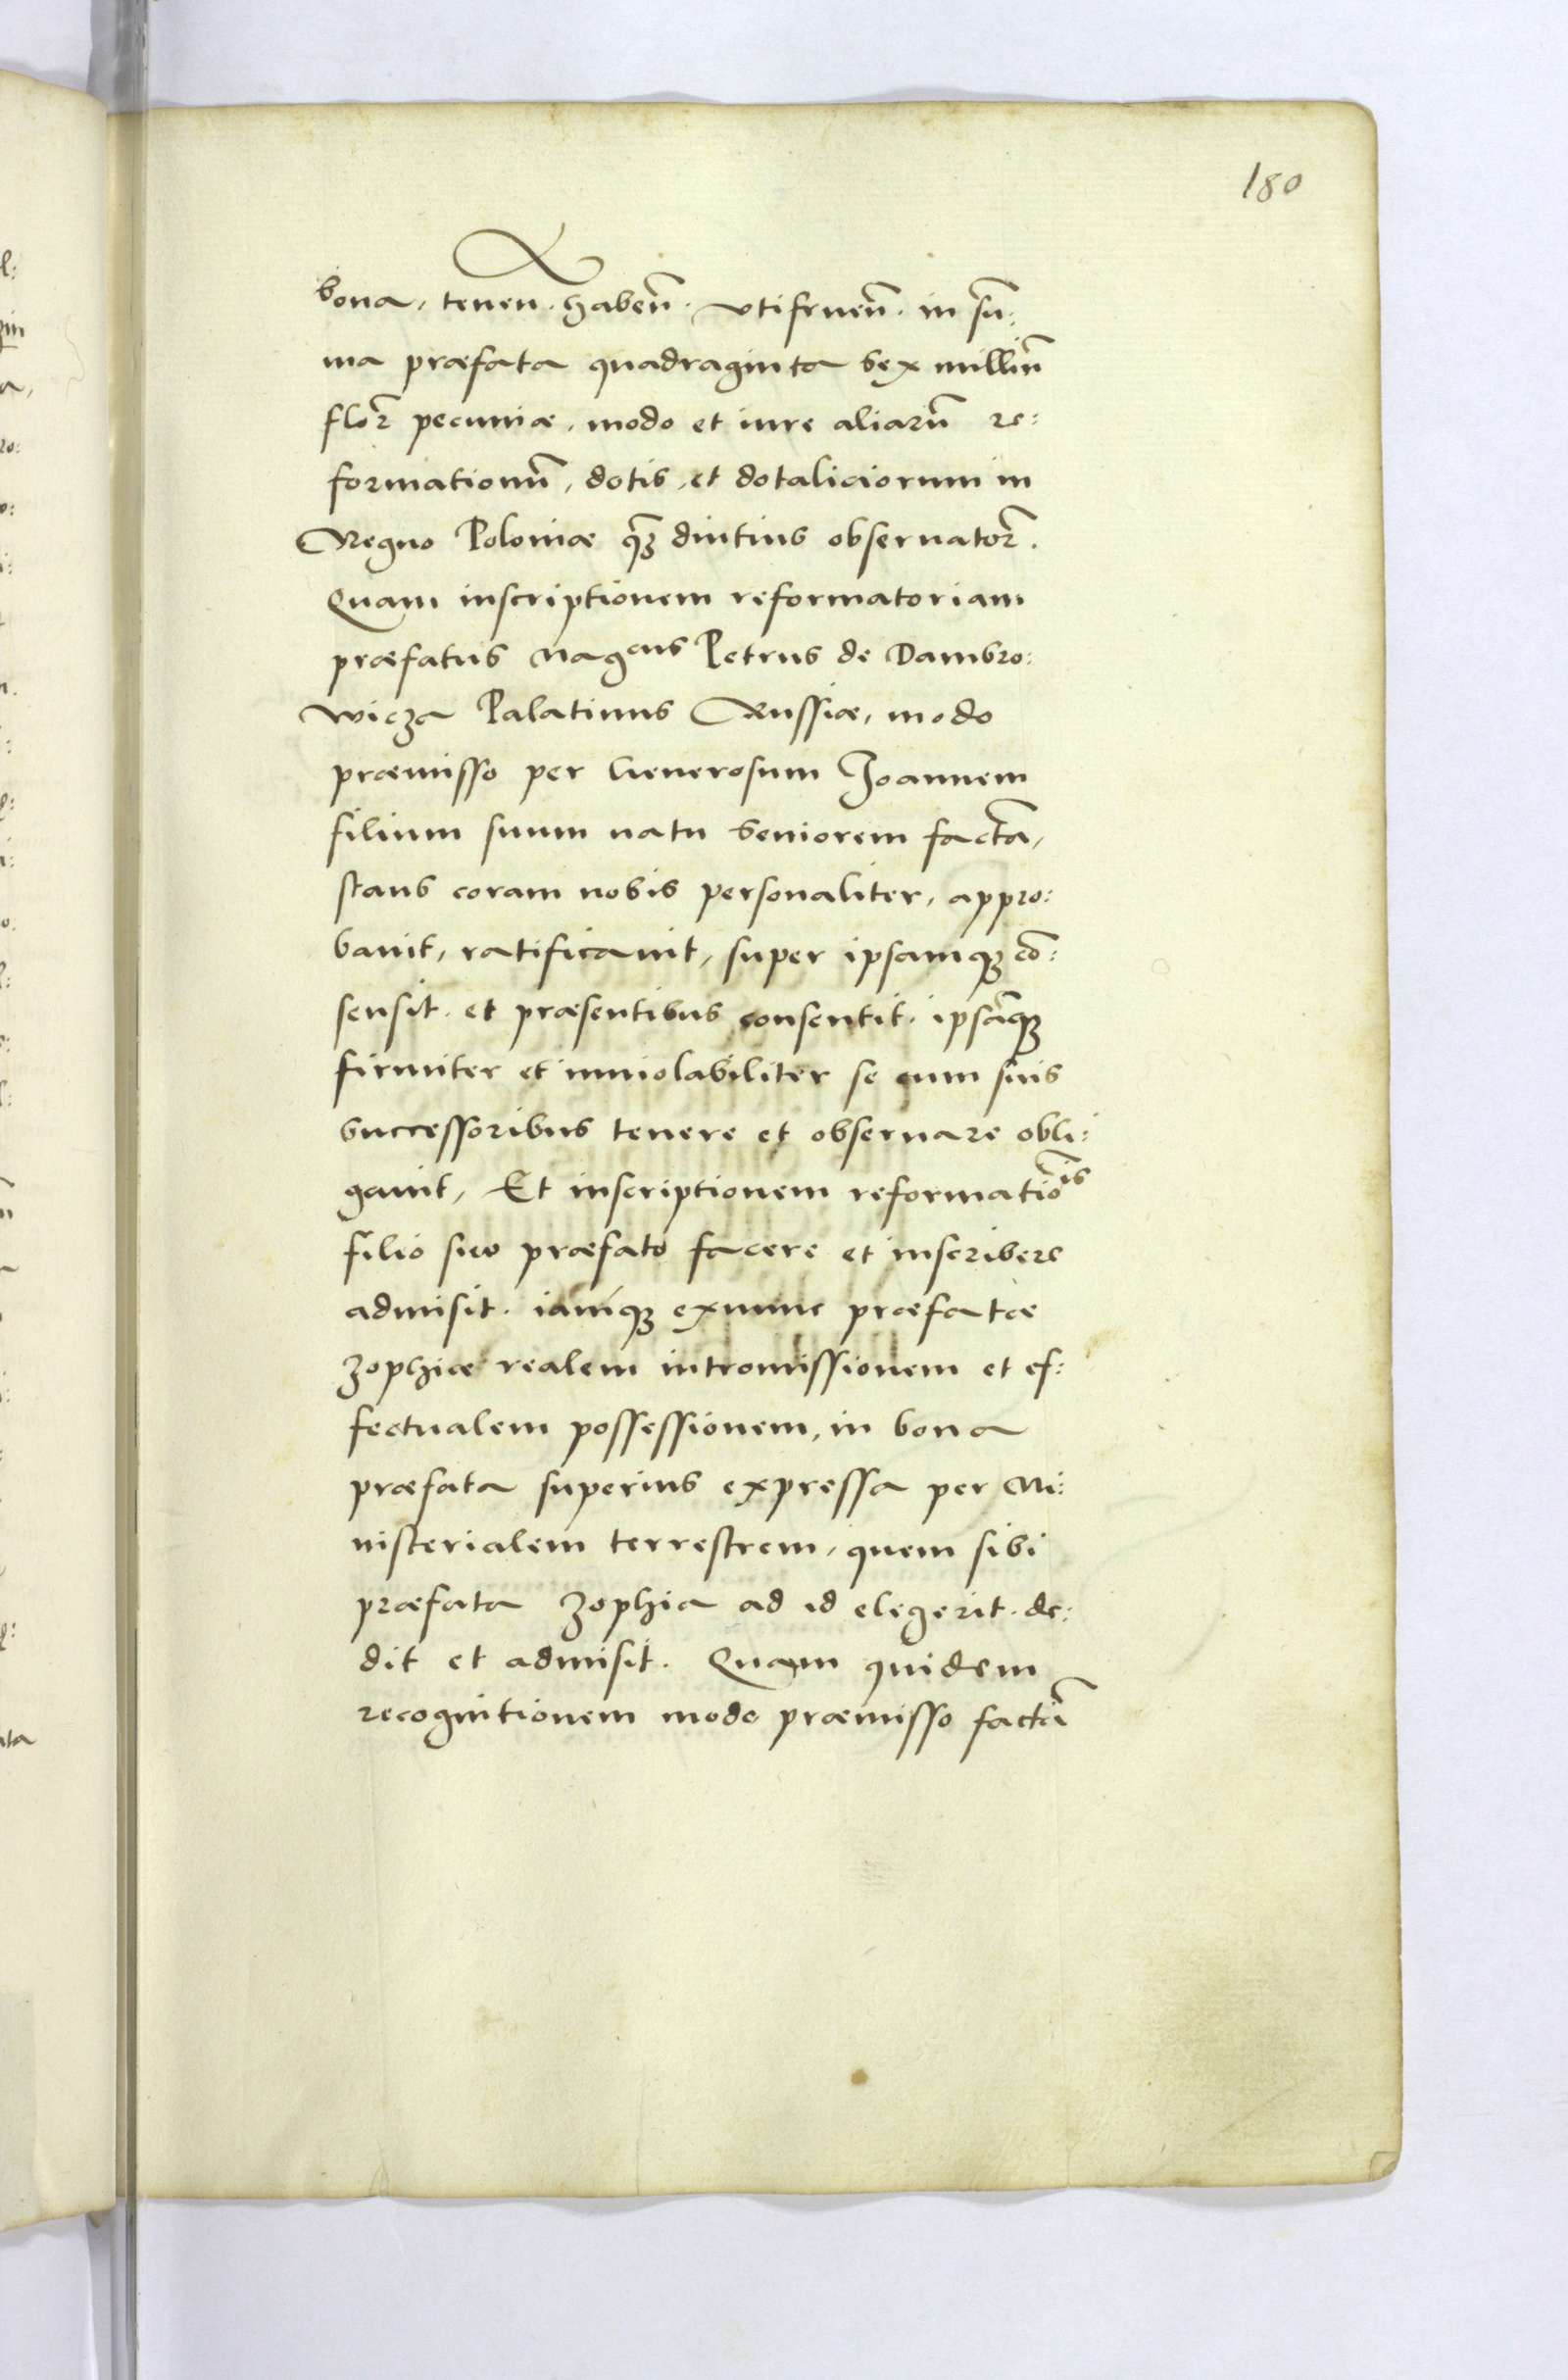 180
bona, tenen. habeñ. vtifrueñ. in sũ:
ma præfata quadraginta sex milliũ
flor̃ pecuniæ, modo et iure aliarũ re:
formationũ, dotis, et dotaliciorum in
Regno Poloniæ q̃ȝ diutius obseruator̃.
Quam inscriptionem reformatoriam
præfatus Mag^cus Petrus de Dambro:
wicza Palatinus Russiæ, modo
præmisso per Generosum Joannem
filium suum natu seniorem factã,
stans coram nobis personaliter, appro:
bauit, ratificauit, super ipsamqȝ cõ:
sensit. et præsentibus consentit. ipsãqȝ
firmiter et inuiolabiliter se cum suis
successoribus tenere et obseruare obli:
gauit, Et inscriptionem reformatiõis
filio suo præfato facere et inscribere
admisit. iamqȝ exnunc præfatæ
Zophiæ realem intromissionem et ef:
fectualem possessionem, in bona
præfata superius expressa per Mi:
nisterialem terrestrem, quem sibi
præfata Zophia ad id elegerit. de:
dit et admisit. Quam quidem
recognitionem modo præmisso factã